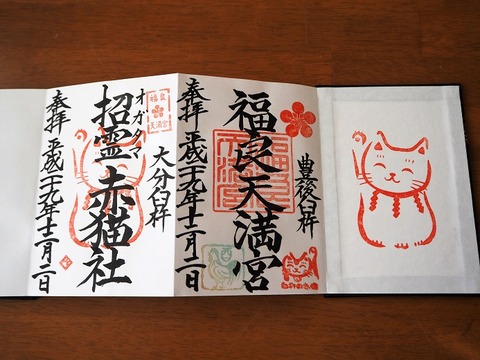 豊後臼杵
福良天満宮
奉拝 平成二十九年十二月二日
大分臼杵
福良
天満宮
オガタマ
招霊赤猫社
奉拝 平成二十九年十二月二日